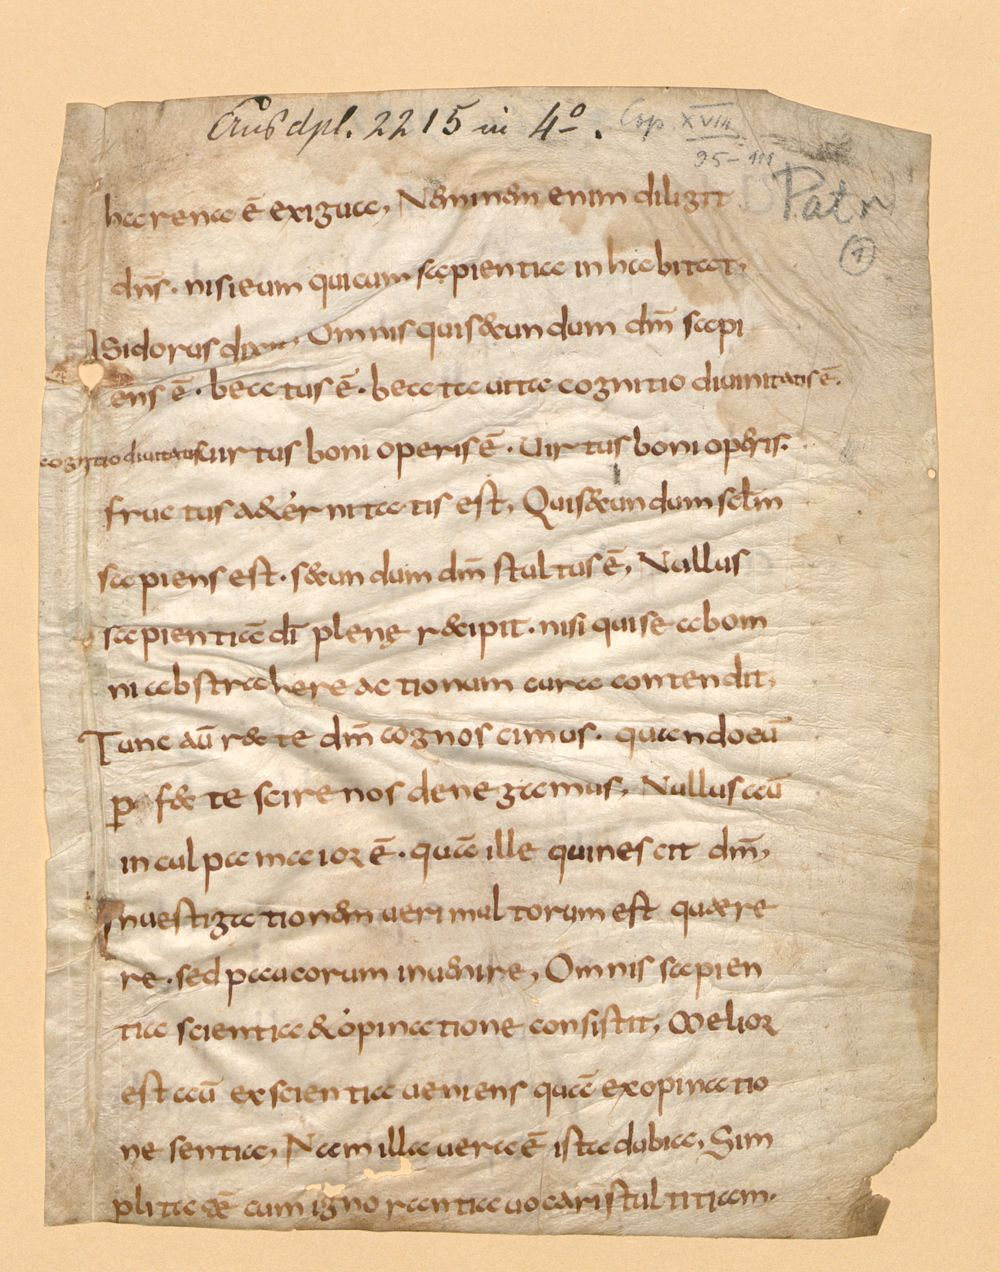 Ausdpl. 2215 in 4º. Csp. XVIII
95-111
Patr
haerentia ē exigua, Neminem enim diligit
dn̄s. nisi eum qui cum sapientia inhabitat,
Isidorus dixit, Omnis qui secundum dm̄ sapi
ens ē. beatus ē. beata uita cognitio diuinitatis ē.
cognitio diuinitatis uirtus boni operis ē. Uirtus boni operis.
fructus aeternitatis est, Qui secundum sclm̄
sapiens est. secundum dm̄ stultus ē, Nullus
sapientiā dī plenę recipit. nisi qui se ab om
ni abstrahere actionum cura contendit,
Tunc aū recte dm̄ cognoscimus. quando eū
perfecte scire nos denegamus, Nullus aū
in culpa maior ē. quā ille qui nescit dm̄,
Inuestigationem ueri multorum est quaere
re. sed paucorum inuenire, Omnis sapien
tia scientia et opinatione consistit, Melior
est aū ex scientia ueniens quā ex opinatio
ne sentia, Nam illa uera ē ista dubia, Sim
plicitatē cum ignorantia uocari stultitiam.